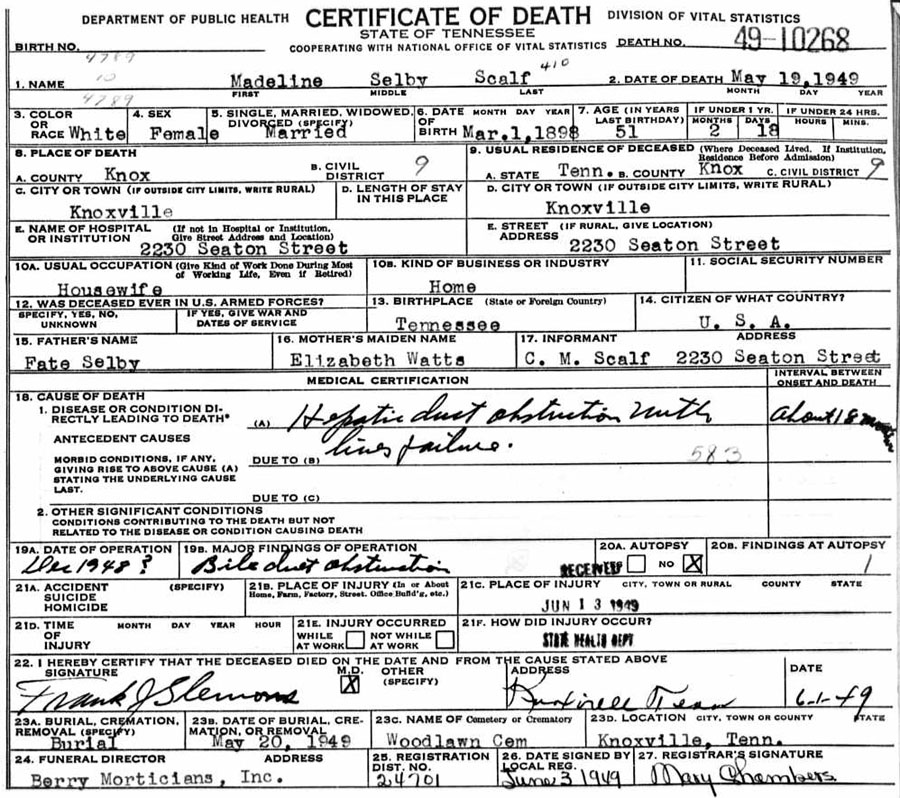 DEPARTMENT OF PUBLIC HEALTH CERTIFICATE OF DEATH DIVISION OF VITAL STATISTICS
STATE OF TENNESSEE
BIRTH NO. COOPERATING WITH NATIONAL OFFICE OF VITAL STATISTICS DEATH NO. 49-10268
4789
10 410
1. NAME Madeline Selby Scalf 2. DATE OF DEATH May 19, 1949
FIRST MIDDLE LAST MONTH DAY YEAR
4789
3. COLOR OR RACE White 4. SEX Female 5. SINGLE, MARRIED, WIDOWED, DIVORCED (SPECIFY) Married 6. DATE OF BIRTH MONTH DAY YEAR Mar.1,1898 7. AGE (IN YEARS LAST BIRTHDAY) 51 IF UNDER 1 YR. MONTHS 2 DAYS 18 IF UNDER 24 HRS. HOURS MINS.
8. PLACE OF DEATH 9. USUAL RESIDENCE OF DECEASED (Where Deceased Lived. If Institution, Residence Before Admission)
A. COUNTY Knox B. CIVIL DISTRICT 9 A. STATE Tenn. B. COUNTY Knox C. CIVIL DISTRICT 9
C. CITY OR TOWN (IF OUTSIDE CITY LIMITS, WRITE RURAL) D. LENGTH OF STAY IN THIS PLACE D. CITY OR TOWN (IF OUTSIDE CITY LIMITS, WRITE RURAL)
Knoxville Knoxville
E. NAME OF HOSPITAL OR INSTITUTION (If not in Hospital or Institution, Give Street Address and Location) E. STREET ADDRESS (IF RURAL, GIVE LOCATION)
2230 Seaton Street 2230 Seaton Street
10A. USUAL OCCUPATION (Give Kind of Work Done During Most of Working Life, Even if Retired) 10B. KIND OF BUSINESS OR INDUSTRY 11. SOCIAL SECURITY NUMBER
Housewife Home
12. WAS DECEASED EVER IN U.S. ARMED FORCES? 13. BIRTHPLACE (State or Foreign Country) 14. CITIZEN OF WHAT COUNTRY?
SPECIFY, YES, NO, UNKNOWN IF YES, GIVE WAR AND DATES OF SERVICE Tennessee U. S. A.
15. FATHER'S NAME 16. MOTHER'S MAIDEN NAME 17. INFORMANT ADDRESS
Fate Selby Elizabeth Watts C. M. Scalf 2230 Seaton Street
MEDICAL CERTIFICATION INTERVAL BETWEEN ONSET AND DEATH
18. CAUSE OF DEATH
1. DISEASE OR CONDITION DIRECTLY LEADING TO DEATH* (A) Hepatic duct obstruction with About 18
ANTECEDENT CAUSES
MORBID CONDITIONS, IF ANY, GIVING RISE TO ABOVE CAUSE (A) STATING THE UNDERLYING CAUSE LAST.
DUE TO (B) liver failure. 583
DUE TO (C)
2. OTHER SIGNIFICANT CONDITIONS
CONDITIONS CONTRIBUTING TO THE DEATH BUT NOT
RELATED TO THE DISEASE OR CONDITION CAUSING DEATH
19A. DATE OF OPERATION 19B. MAJOR FINDINGS OF OPERATION 20A. AUTOPSY 20B. FINDINGS AT AUTOPSY
Dec 1948? Bile duct obstruction RECEIVED NO X 1
21A. ACCIDENT SUICIDE HOMICIDE (SPECIFY) 21B. PLACE OF INJURY (In or About Home, Farm, Factory, Street. Office Build'g, etc.) 21C. PLACE OF INJURY CITY, TOWN OR RURAL COUNTY STATE
JUN 13 1949
21D. TIME OF INJURY MONTH DAY YEAR HOUR 21E. INJURY OCCURRED WHILE AT WORK NOT WHILE AT WORK 21F. HOW DID INJURY OCCUR?
STATE HEALTH DEPT
22. I HEREBY CERTIFY THAT THE DECEASED DIED ON THE DATE AND FROM THE CAUSE STATED ABOVE
SIGNATURE M.D. X OTHER (SPECIFY) ADDRESS DATE
Frank J Slemons Knoxville Tenn 6-1-49
23A. BURIAL, CREMATION, REMOVAL (SPECIFY) 23B. DATE OF BURIAL, CREMATION, OR REMOVAL 23C. NAME OF Cemetery or Crematory 23D. LOCATION CITY, TOWN OR COUNTY STATE
Burial May 20, 1949 Woodlawn Cem. Knoxville, Tenn.
24. FUNERAL DIRECTOR ADDRESS 25. REGISTRATION DIST. NO. 26. DATE SIGNED BY LOCAL REG. 27. REGISTRAR'S SIGNATURE
Berry Morticians, Inc. 24701 June 3 1949 Mary Chambers